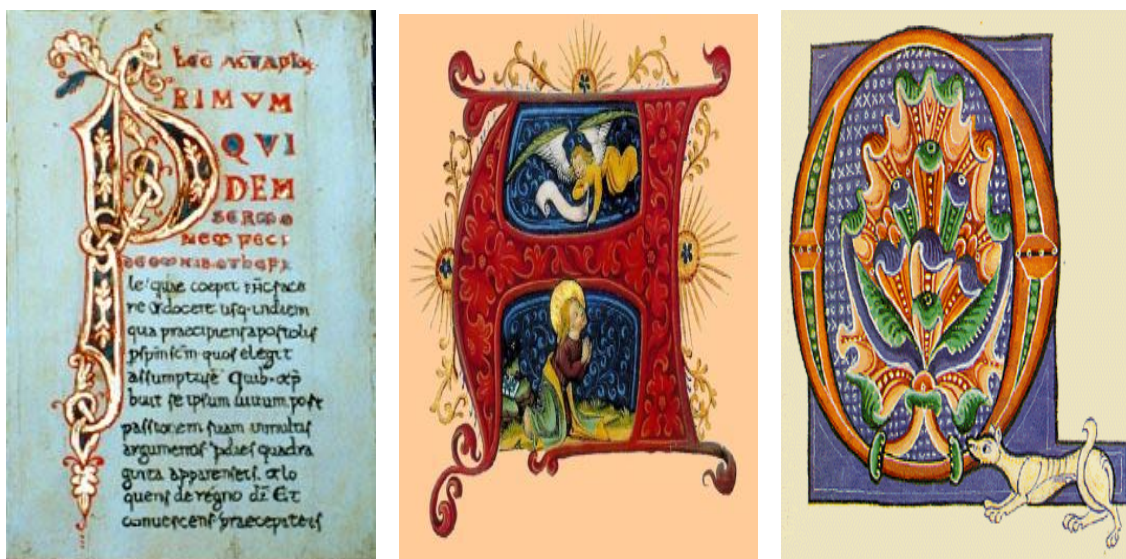 P
RIMVM
QVI
DEM
SERMO
NEM FECI
DE OMNIB· O THEOFI
le· quae coepit ihc face
re & docere usq· in diem
qua praecipiens apostolis
p spm scm quos elegit
assumptus e· Quib· & p
buit se ipsum uiuum post
passionem suam in multis
argumentis p dies quadra
ginta apparens eis· & lo
quens de regno di· Et
conuescens praecepit eis
A
Q